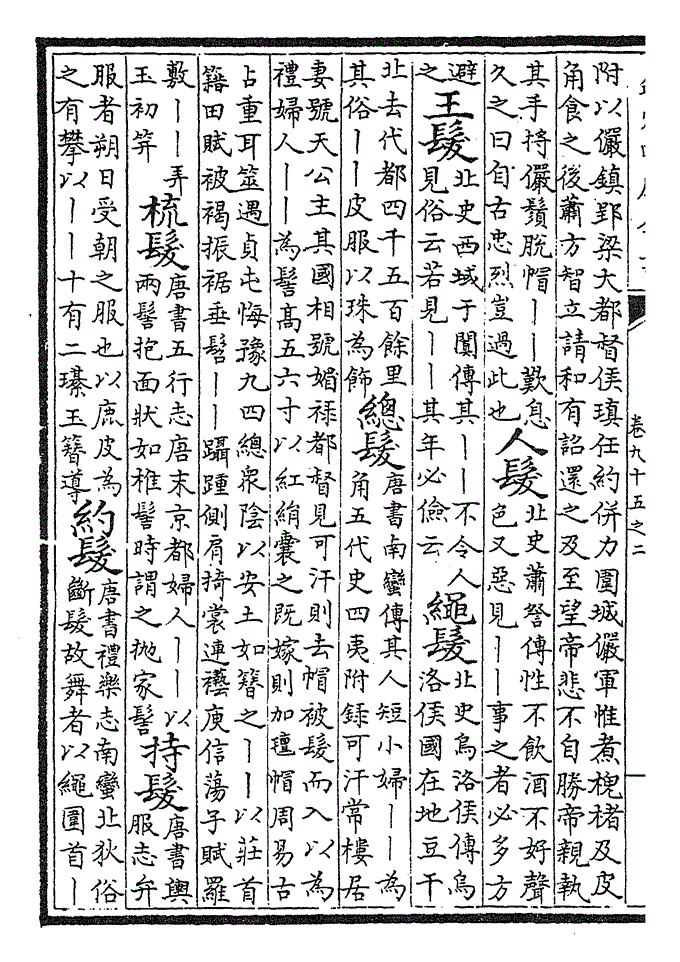 卷九十五之二
附以儼鎮郢梁大都督侯瑱任約併力圍城儼軍惟煮槐楮及皮
角食之後蕭方智立請和有詔還之及至望帝悲不自勝帝親執
其手捋儼鬚脫帽丨丨歎息
久之曰自古忠烈豈過此也
人髮
北史蕭詧傳性不飲酒不好聲
色又惡見丨丨事之者必多方
避
之
王髮
北史西域于闐傳其丨丨不令人
見俗云若見丨丨其年必儉云
繩髮
北史烏洛侯傳烏
洛侯國在地豆干
北去代都四千五百餘里
其俗丨丨皮服以珠為飾
總髮
唐書南蠻傳其人短小婦丨丨為
角五代史四夷附錄可汗常樓居
妻號天公主其國相號媚祿都督見可汗則去帽被髮而入以為
禮婦人丨丨為髻高五六寸以紅絹囊之既嫁則加氊帽周易古
占重耳筮遇貞屯悔豫九四總衆陰以安土如簪之丨丨以莊首
籍田賦被褐振裾垂髫丨丨躡踵側肩掎裳連襼庾信蕩子賦羅
敷丨丨弄
玉初笄
梳髮
唐書五行志唐末京都婦人丨丨以
兩鬢抱面狀如椎髻時謂之拋家髻
持髮
唐書輿
服志弁
服者朔日受朝之服也以鹿皮為
之有攀以丨丨十有二瑧玉簪導
約髮
唐書禮樂志南蠻北狄俗
斷髮故舞者以繩圍首丨